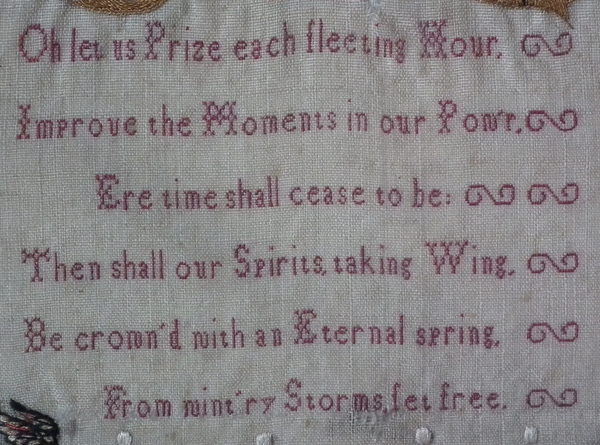 Oh let us Prize each fleeting Hour,
Improve the Moments in our Pow'r,
Ere time shall cease to be:
Then shall our Spirits, taking Wing,
Be crown'd with an Eternal spring,
From wint'ry Storms, ſet free.